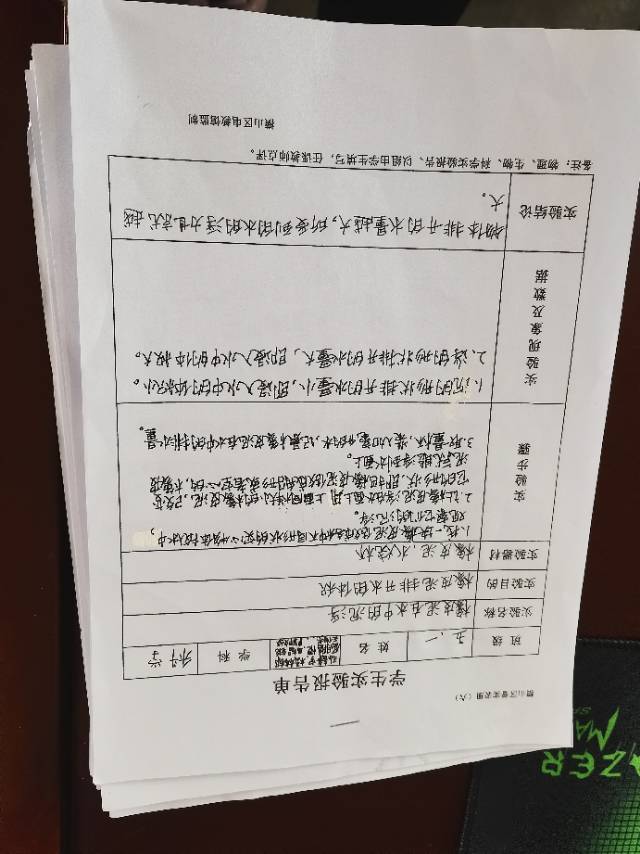 横山区督实表册（六）
学生实验报告单
班级 五、一 姓名 学科 科学
实验名称 橡皮泥在水中的沉浮
实验目的 橡皮泥排开水的体积
实验器材 橡皮泥、水、烧杯
实验步骤
1、找一块橡皮泥
观察它们的沉浮。
2、让橡皮泥浮在水面上,用上面同样大的橡皮泥,改变
它的形状,即把橡皮泥做成
泥就能浮到水面上。
3、取量杯,装入
实验现象及数据
1、沉的形状排开的水量小,即浸入水中的体积小。
2、浮的形状排开的水量大,即浸入水中的体积大。
实验结论
物体排开的水量越大,所受到的水的浮力也就越
大。
备注：物理、生物、科学实验报告、以组由学生填写，任课教师点评。
横山区电教馆监制
AZER
MA